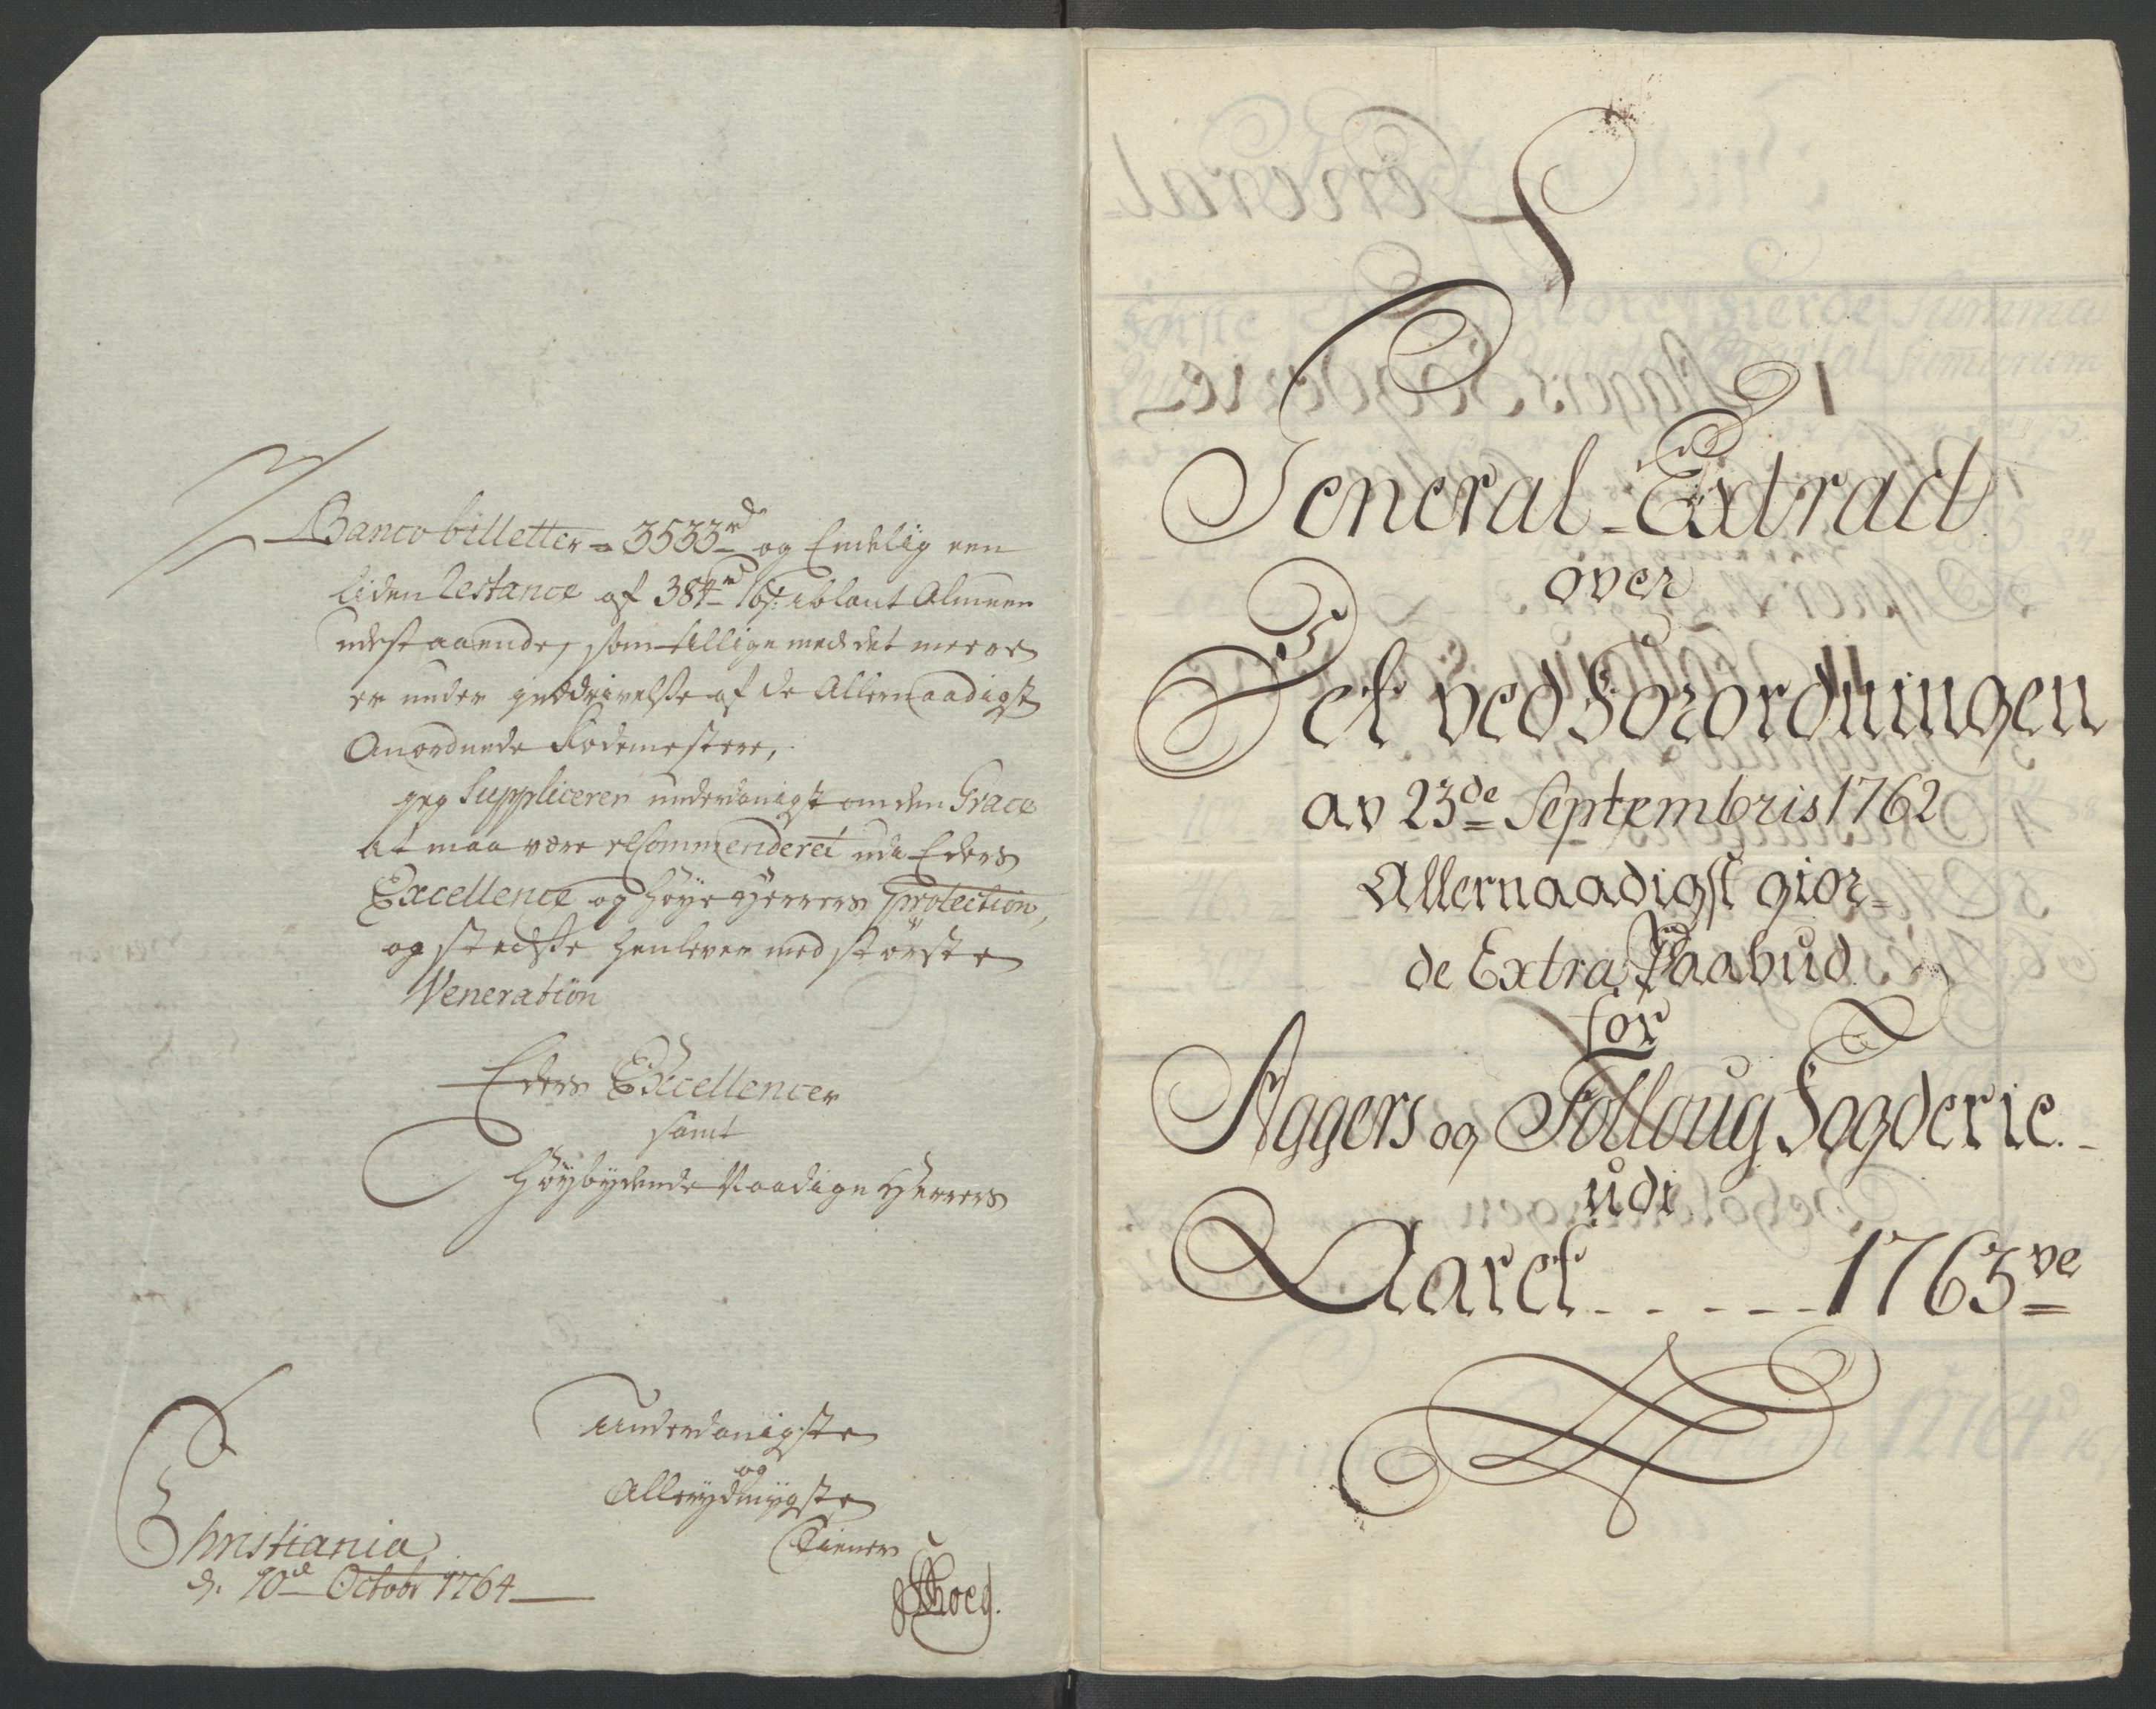 Banco billetter = 3533rd og Endelig een
liden Restance af 384rd 16s: iblant Almuen
udestaaende, som tillige med det meere
er under inddrivelse af de Allernaadigst
Anordnede Rodemestere,
jeg Supplicerer underdanigst om den Grace
at maa være recommenderet udi Eders
Excellence og høye Herrers protection,
og stedse henlever med største
Veneration
Eders Excellencer
samt
Høybydende Naadige Herrers
Underdanigste
og
Allerydmygste
Tiener
Christiania
d. 10d Octobr 1764
General-Extract
over
Det ved Forordningen
av 23de Septembris 1762
Allernaadigst gior-
de Extra Paabud
for
Aggers og Folloug Fogderie.
udi
Aaret - - - - - 1763ve